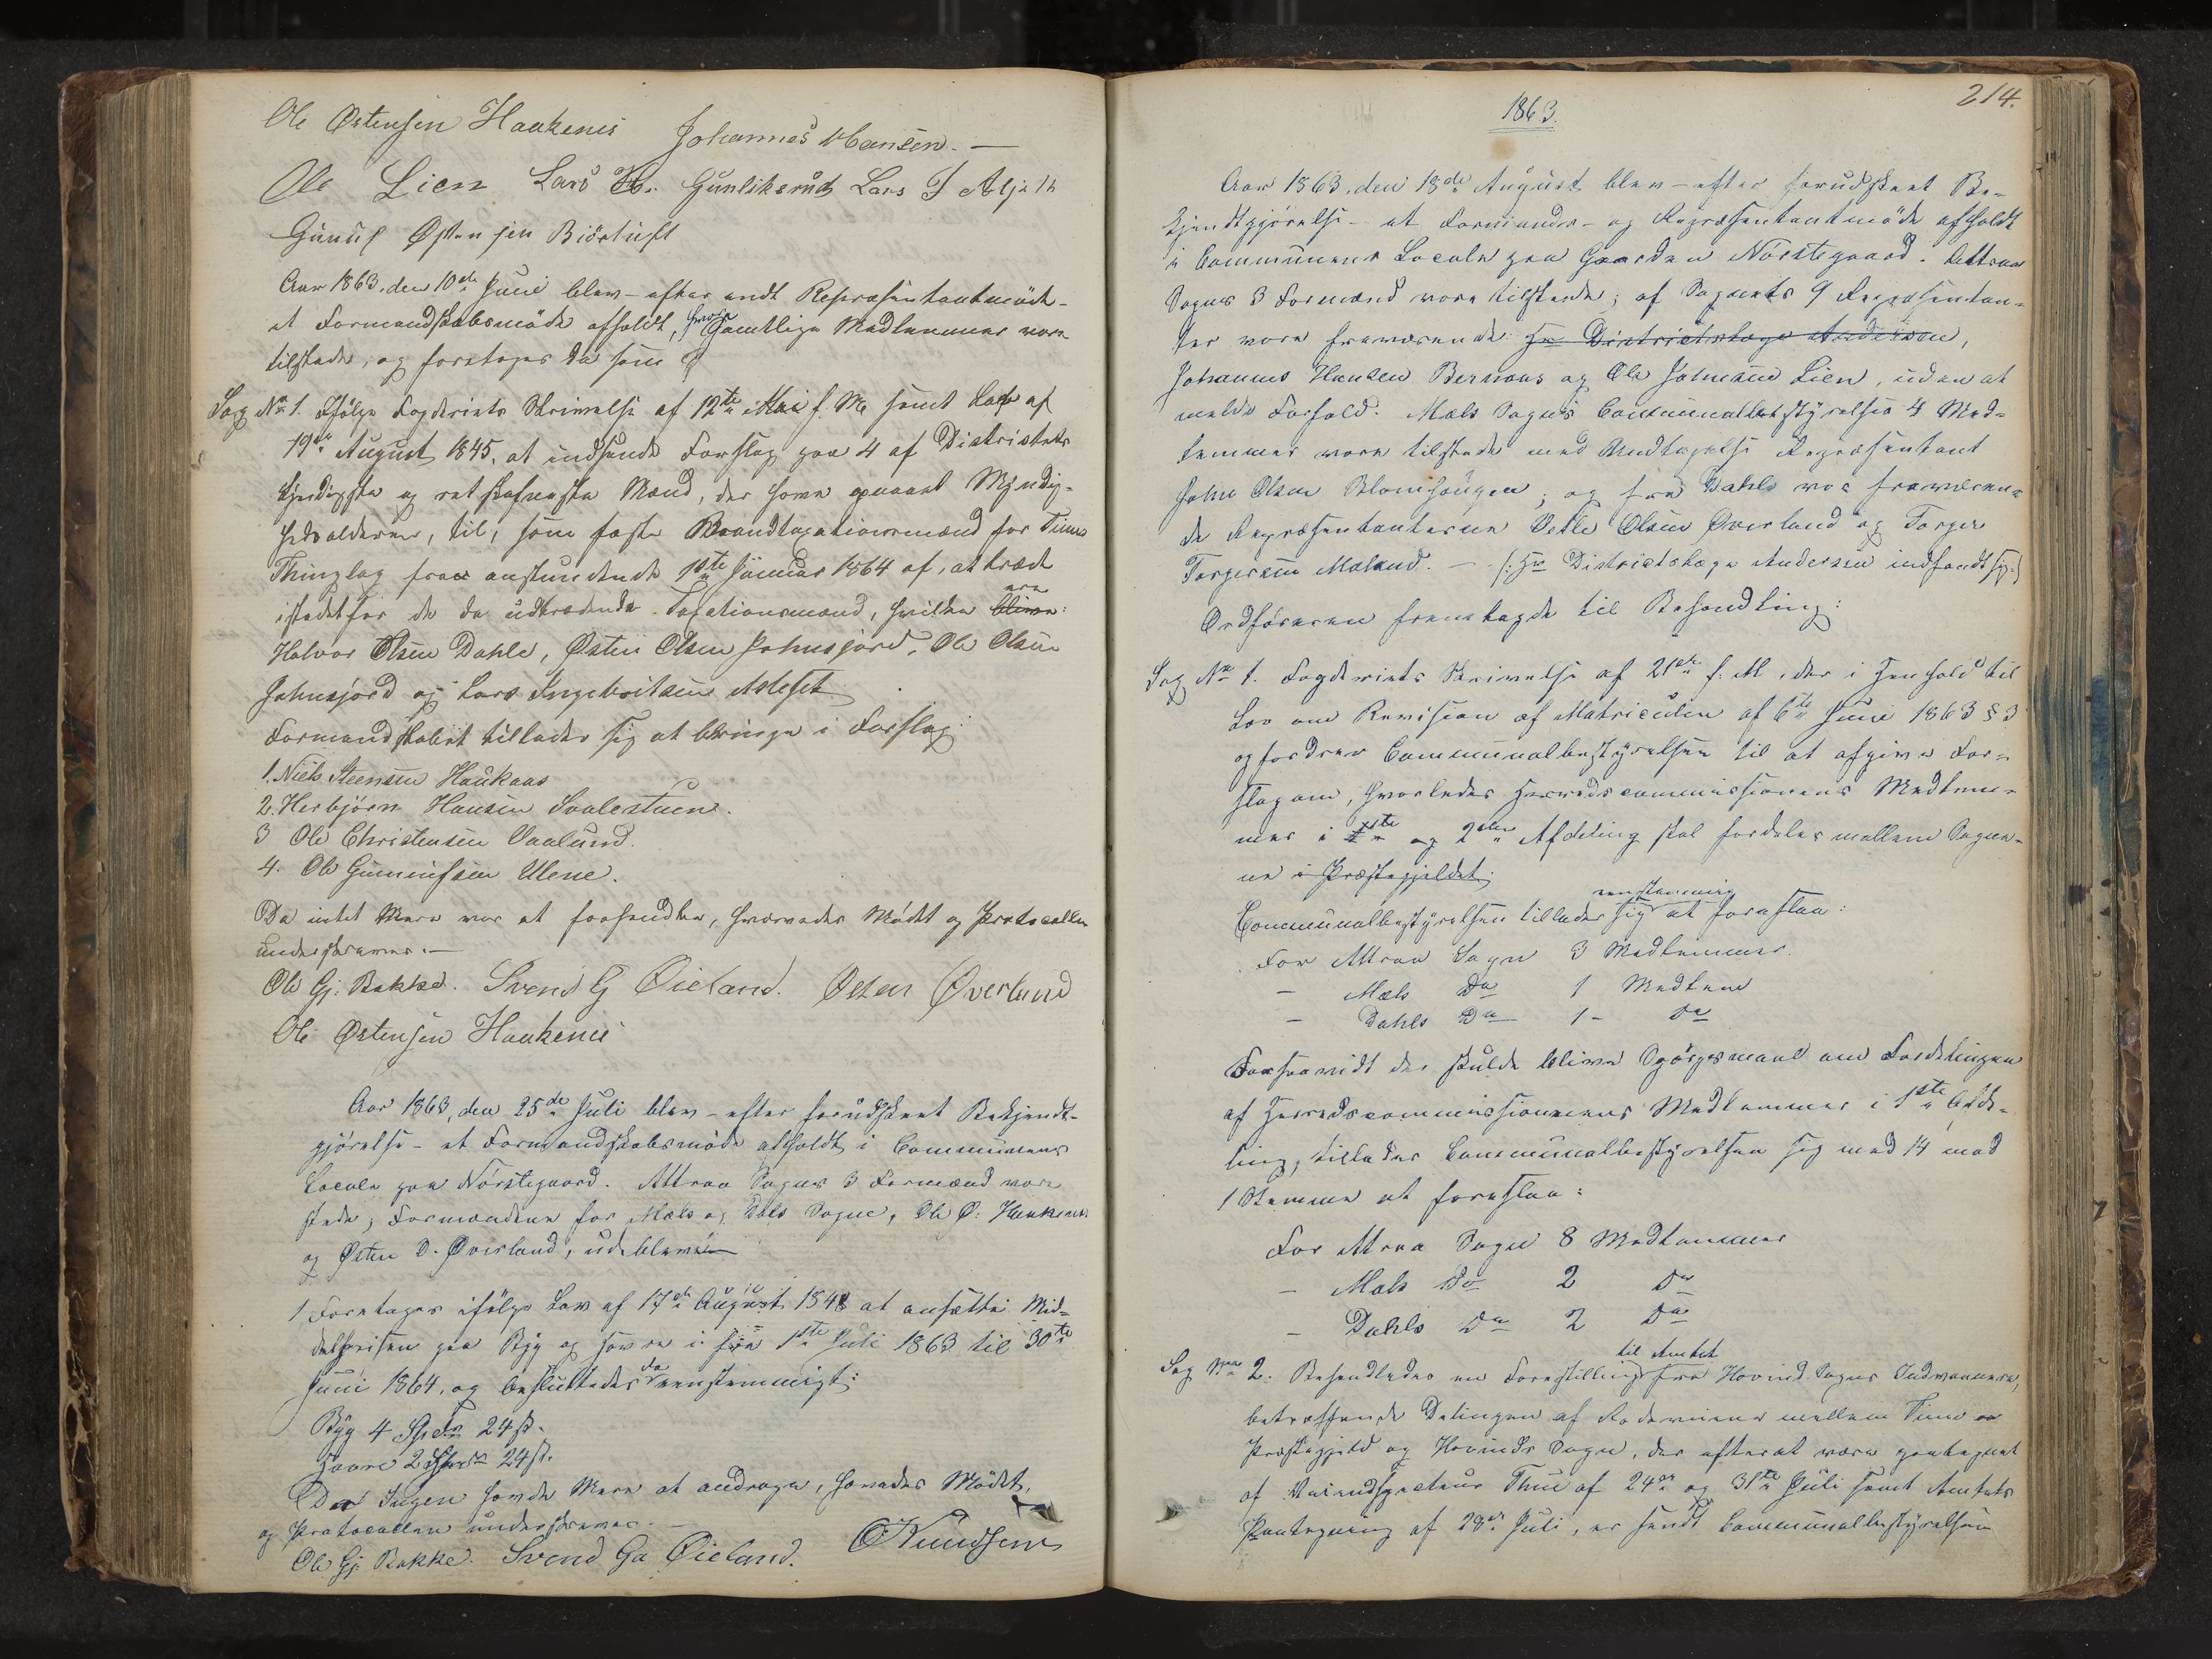 Ole Østensen Haakenes Johannes Hansen. —
Ole Lien Lars H. Gunliksrud Lars T
Gunuf Østensen Biørtuft
Aar 1863, den 10de Juni blev – efter endt Repræsentantmøde –
et Formandskabsmøde afholdt, hvor samtlige Medlemmer vare
tilstede, og foretoges da som
Sag No 1. Ifølge Fogderiets Skrivelse af 12te Mai f. M. samt Lov af
19de August 1845, at indsende Forslag paa 4 af Districtets
kyndigste og retskafneste Mænd, der have opnaaet Myndig-
hedsalderen, til, som faste Brandtaxationsmænd for Tinns
Thinglag fra anstundende 1ste Januar 1864 af, at træde
istedetfor de da udtrædende Taxationsmænd, hvilke ere
Halvor Olsen Dahle, Østen Olsen Johnsjord, Ole Olsen
Johnsjord og Lars Ingebritsen Asleset
Formandskabet tillader sig at bringe i Forslag:
1. Niels Steensen Haukaas
2. Herbjørn Hansen Svalestuen.
3 Ole Christensen Vaalund.
4. Ole Gunnufsen Ulene.
Da intet Mere var at forhandles, hævedes Mødet og Protocollen
underskreves. —
Ole Gj: Bakke. Svend G Øieland. Østen Øverland
Ole Østensen Haakenes
Aar 1863, den 25de Juli blev – efter forudskeet Bekjendt-
gjørelse – et Formandskabsmøde afholdt i Communens
Locale paa Nørstegaard. Attraa Sogns 3 Formænd vare
stede; Formændene for Mæls og Dals Sogne, Ole Ø. Haakenes
og Østen D. Øverland, udebleve
1 Foretoges ifølge Lov af 17de August 1848 at ansætte Mid-
delprisen paa Byg og Havre i fra 1ste Juli 1863 til 30te
Juni 1864, og besluttedes da eenstemmigt:
Byg 4 Spdlr 24 ß.
Havre 2 Spdlr 24 ß.
Da Ingen havde Mere at andrage, hævedes Mødet,
og Protocollen underskreves. —
Ole Gj: Bakke. Svend Ga Øieland. O Knudsen
214.
1863.
Aar 1863, den 18de August blev – efter forudskeet Be-
kjendtgjørelse – et Formands- og Repræsentantmøde afholdt
i Communens Locale paa Gaarden Nørstegaard. Attraa
Sogns 3 Formænd vare tilstede; af Sognets 9 Repræsentan-
ter vare fraværende: Hr Districtslæge Andersen,
Johannes Hansen Bernaas og Ole Johnsen Lien, uden at
melde Forfald. Mæls Sogns Communalbestyrelses 4 Med-
lemmer vare tilstede med Undtagelse Repræsentant
John Olsen Blomhaugen; og fra Dahls var fraværen-
de Repræsentanterne Vetle Olsen Øverland og Torger
Torgersen Moland. – /: Hr Districtslæge Andersen indfandt sig :/
Ordføreren fremlagde til Behandling:
Sag No 1. Fogderiets Skrivelse af 21de f. M., der i Henhold til
Lov om Revision af Matriculen af 6te Juni 1863 § 3
opfordrer Communalbestyrelsen til at afgive For-
slag om, hvorledes Herredscommissionens Medlem-
mer i 1ste og 2den Afdeling skal fordeles mellem Sogne-
ne i Præstegjeldet.
Communalbestyrelsen tillader sig eenstemmig at foreslaa:
For Attraa Sogn 3 Medlemmer.
– Mæls Do 1 Medlem
– Dahls Do 1 – Do
Forsaavidt der skulde blive Spørgsmaal om Fordelingen
af Herredscommissionens Medlemmer i 1ste Afde-
ling, tillader Communalbestyrelsen sig med 14 mod
1 Stemme at foreslaa:
For Attraa Sogn 8 Medlemmer
– Mæls Do 2 Do
– Dahls Do 2 Do
Sag No 2. Behandledes en Forestilling til Amtet fra Hovind Sogns Indvaanere,
betræffende Delingen af Roderne mellem Tinn
Præstegjeld og Hovinds Sogn, der efterat være paategnet
af Veiinspecteur Thue af 24de og 31te Juli samt Amtets
Paategning af 28de Juli, er sendt Communalbestyrelsen